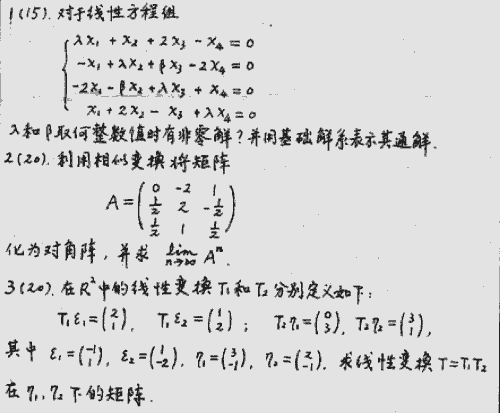 1(15). 对于线性方程组
λx₁ + x₂ + 2x₃ - x₄ = 0
-x₁ + λx₂ + βx₃ - 2x₄ = 0
-2x₁ - βx₂ + λx₃ + x₄ = 0
x₁ + 2x₂ - x₃ + λx₄ = 0
λ和β取何整数值时有非零解?并用基础解系表示其通解.
2(20). 利用相似变换将矩阵
A = ( 0 -2 1
1/2 2 -1/2
1/2 1 1/2 )
化为对角阵, 并求 lim n→∞ Aⁿ.
3(20). 在R²中的线性变换T₁和T₂分别定义如下:
T₁ε₁=(2 1), T₁ε₂=(1 2); T₂η₁=(0 3), T₂η₂=(3 1),
其中 ε₁=(-1 1), ε₂=(1 -2), η₁=(3 -1), η₂=(2 -1). 求线性变换T=T₁T₂
在η₁,η₂下的矩阵.